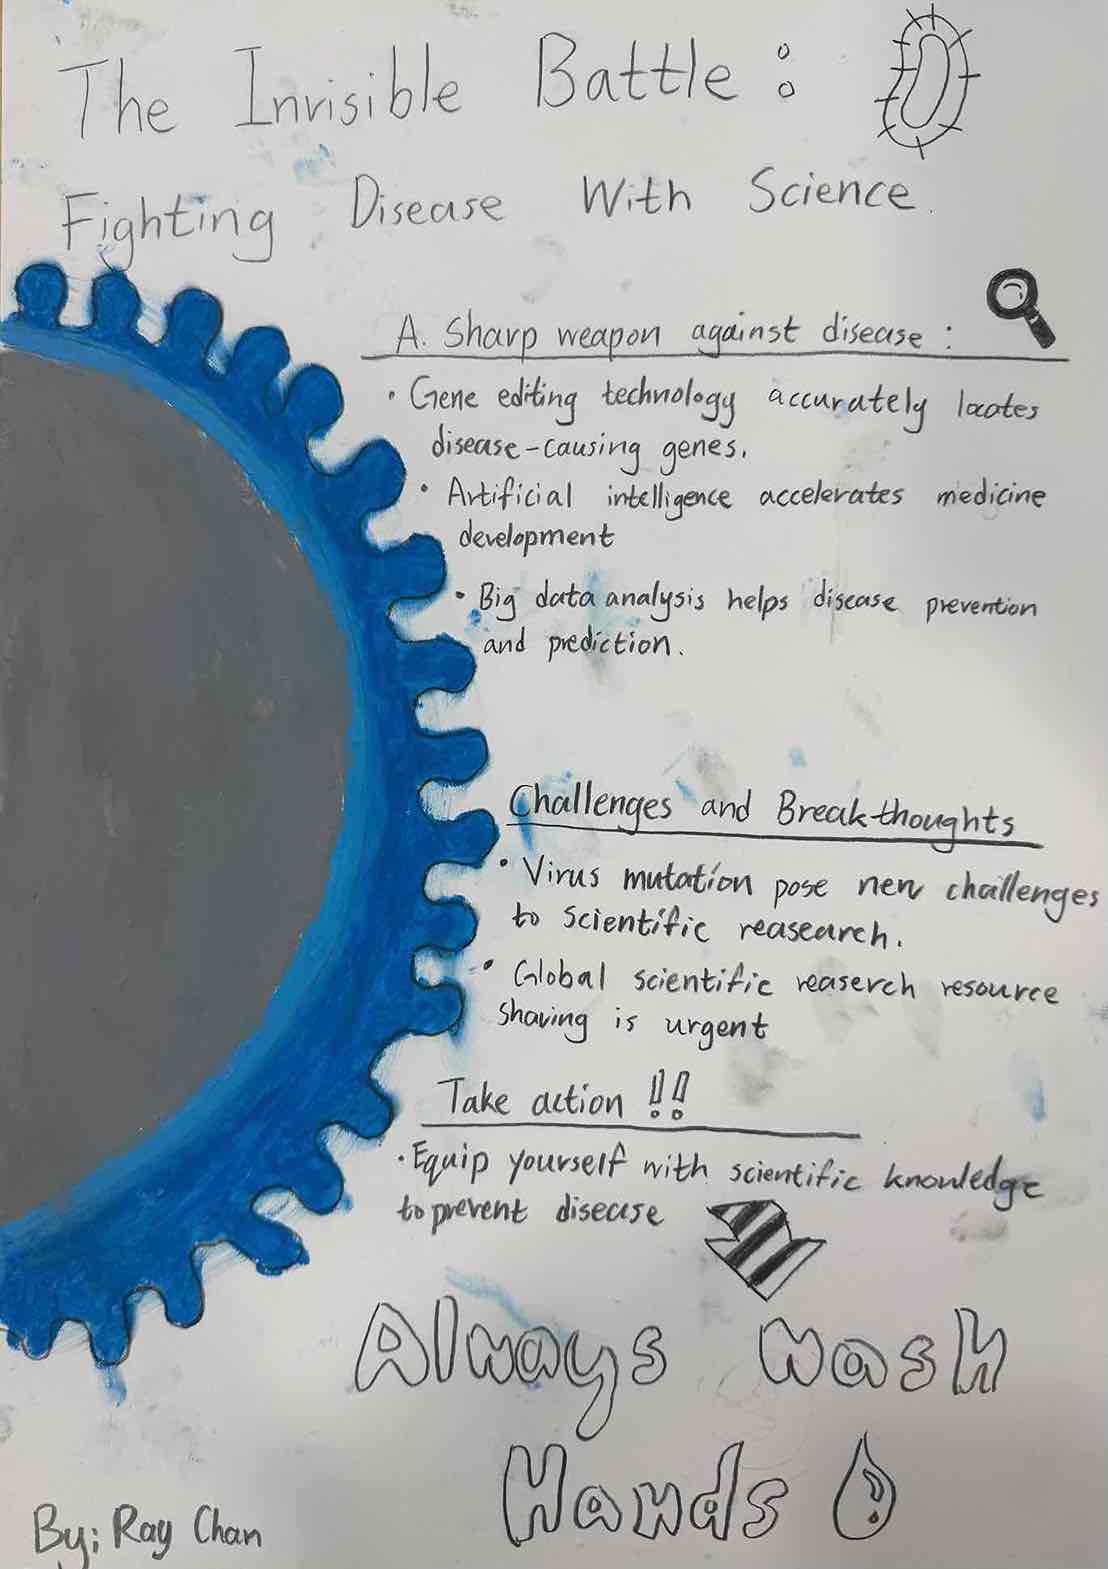 The Invisible Battle :
Fighting Disease With Science.
A. Sharp weapon against disease :
· Gene editing technology accurately locates
disease-causing genes.
· Artificial intelligence accelerates medicine
development
· Big data analysis helps disease prevention
and prediction.
Challenges and Break-thoughts
· Virus mutation pose new challenges
to scientific reasearch.
· Global scientific reaserch resource
sharing is urgent
Take action !!
· Equip yourself with scientific knowledge
to prevent disease
Always wash
Hands
By; Ray Chan